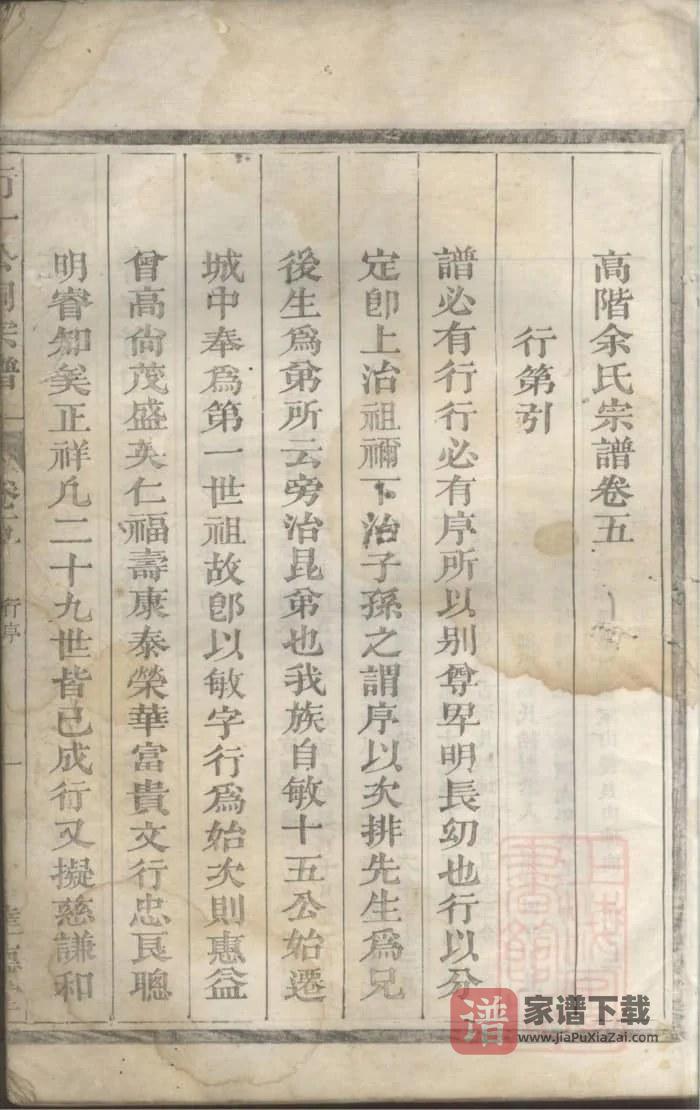 高階余氏宗譜卷五
行第引
譜必有行行必有序所以别尊卑明長幼也行以分
定卽上治祖禰下治子孫之謂序以次排先生爲兄
後生爲弟所云旁治昆弟也我族自敏十五公始遷
城中奉爲第一世祖故卽以敏字行爲始次則惠益
曾高尙茂盛英仁福壽康泰榮華富貴文行忠良聰
明睿知矣正祥凡二十九世皆已成行又擬慈謙和
行序
一
譜
家谱下载
www.JiaPuXiaZai.com